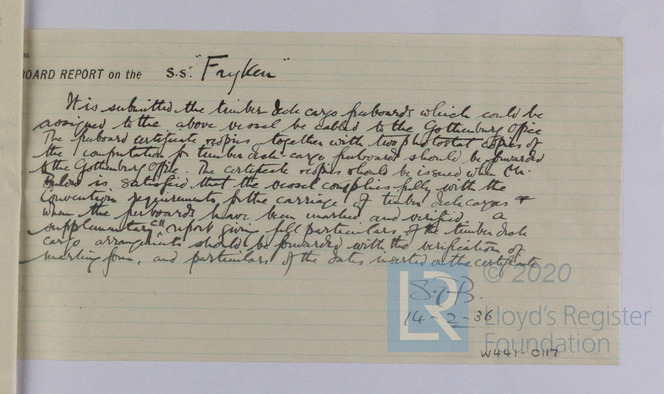 BOARD REPORT on the S.S. "Fryken"
It is submitted the timber deck cargo freeboards which could be
assigned to the above vessel be cabled to the Gothenburg Office
The freeboard certificate & copies together with two photostat copies of
the computation for timber deck cargo freeboard should be forwarded
to the Gothenburg Office. The certificate & copies should be issued when Mr.
is satisfied that the vessel complies fully with the
Convention requirements for the carriage of timber deck cargoes &
when the freeboards have been marked and verified. A
supplementary C11 report giving full particulars of the timber deck
cargo arrangements should be forwarded with the verification of
marking form, and particulars of the dates inserted on the certificate
14-2-36
W441-0117
LR
© 2020
Lloyd's Register
Foundation